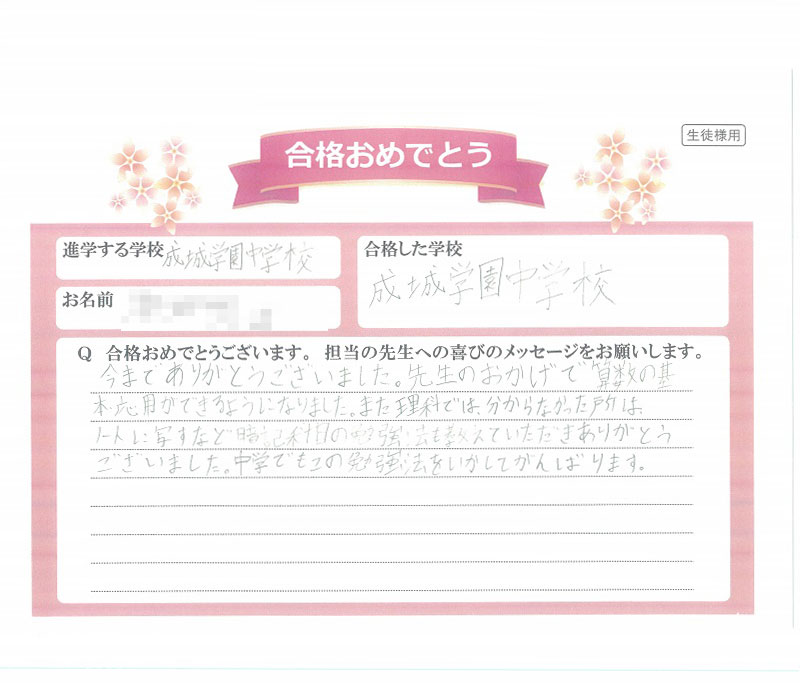 生徒様用
合格おめでとう
進学する学校 成城学園中学校
合格した学校
成城学園中学校
お名前
Q 合格おめでとうございます。担当の先生への喜びのメッセージをお願いします。
今までありがとうございました。先生のおかげで算数の基
本応用ができるようになりました。また理科では、分からなかった所は
ノートに写すなど暗記科目の勉強法も教えていただきありがとう
ございました。中学でもこの勉強法をいかしてがんばります。